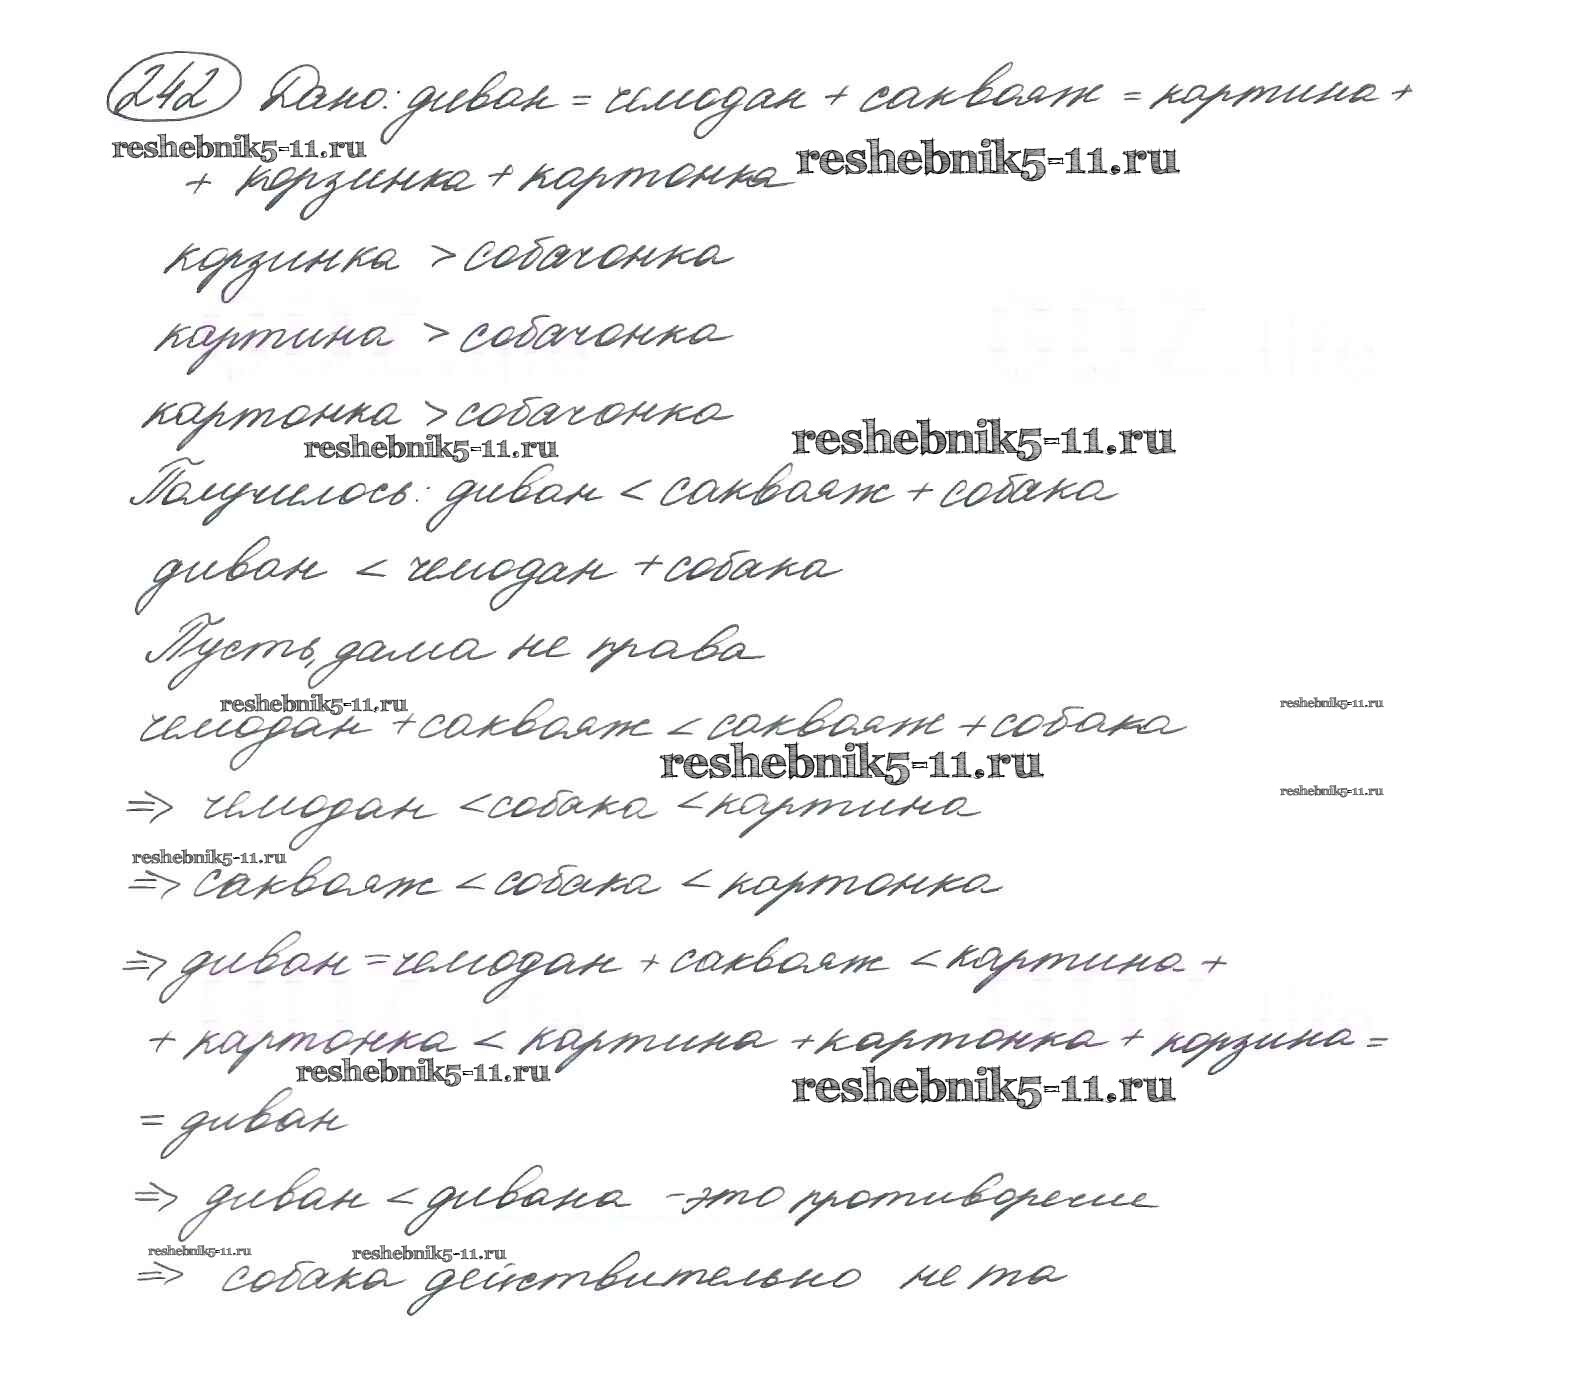 242 Дано: диван = чемодан + саквояж = картина +
reshebnik5-11.ru
reshebnik5-11.ru
+ корзинка + картонка
корзинка > собачонка
картина > собачонка
картонка > собачонка
reshebnik5-11.ru
reshebnik5-11.ru
Получилось: диван < саквояж + собака
диван < чемодан + собака
Пусть, дама не права
reshebnik5-11.ru
reshebnik5-11.ru
чемодан + саквояж < саквояж + собака
reshebnik5-11.ru
=> чемодан < собака < картина
reshebnik5-11.ru
reshebnik5-11.ru
=> саквояж < собака < картонка
=> диван = чемодан + саквояж < картина +
+ картонка < картина + картонка + корзина =
reshebnik5-11.ru
reshebnik5-11.ru
= диван
=> диван < дивана - это противоречие
reshebnik5-11.ru
reshebnik5-11.ru
=> собака действительно не та